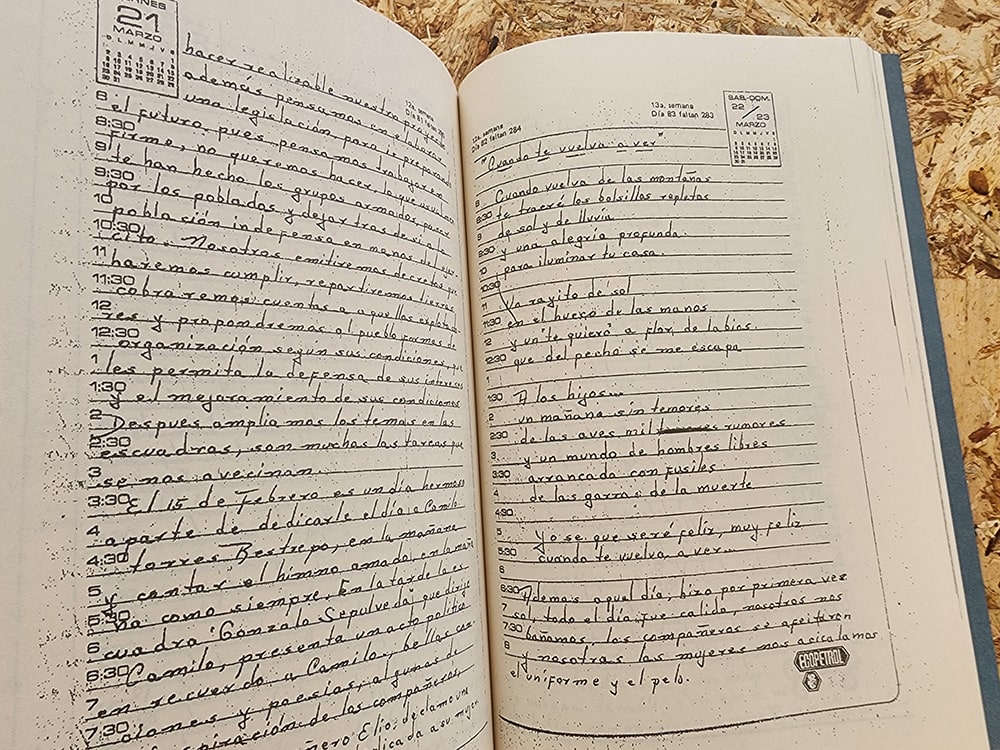 VIERNES
21
MARZO
D L M M J V S
hacer realizable nuestro proyecto
12a, semana
Día 81 faltan
además pensamos en elaborar
una legislación, para ir preparando
8 el futuro, pues pensamos trabajar en
8:30 firme, no queremos hacer, lo que usualmente
9 te han hecho los grupos armados, pasar
9:30 por los poblados y dejar tras de sí a la
10 población indefensa en manos del ejer
10:30 cito. Nosotros emitiremos decretos que
11 haremos cumplir, repartiremos tierras
11:30 cobraremos cuentas a aquellos explotado
12 res y propondremos al pueblo formas de
12:30 organización segun sus condiciones, que
1 les permita la defensa de sus intereses
1:30 y el mejoramiento de sus condiciones
2 Despues ampliamos los temas en las
2:30 escuadras, son muchas las tareas que
3 se nos avecinan.
3:30 El 15 de Febrero es un día hermoso
4 aparte de dedicarle el día a Camilo
4:30 torres Restrepo, en la mañana
5 y cantar el himno amado, en la maña
5:30 na como siempre. En la tarde la es
6 cuadra "Gonzalo Sepulveda" que dirige
6:30 Camilo, presenta un acto político
7 en recuerdo a Camilo, bellas can
7:30 ciones y poesias, algunas de
inspiración de los compañeros,
Elio, declamo una
dedicada a su mujer
12a, semana
Día 82 faltan 284
13a, semana
Día 83 faltan 283
SAB.-DOM.
22/23
MARZO
D L M M J V S
"Cuando te vuelva a ver"
8 Cuando vuelva de las montañas
8:30 te traeré los bolsillos repletos
9 de sol y de lluvia
9:30 y una alegría profunda.
10 para iluminar tu casa.
10:30
11 Un rayito de sol
11:30 en el hueco de las manos
12 y un "te quiero" a flor, de labios.
12:30 que del pecho se me escapa
1
1:30 A los hijos...
2 un mañana sin temores
2:30 de las aves mil rumores
3 y un mundo de hombres libres
3:30 arrancada con fusiles
4 de las garras de la muerte
4:30
5 Yo se que seré feliz, muy feliz
5:30 cuando te vuelva, a ver...
6
6:30 Ademas aquel día, hizo por primera vez
7 sol, todo el día, fue calido, nosotros nos
7:30 bañamos, los compañeros se afeitaron
8 y nosotras las mujeres nos acicalamos
el uniforme y el pelo.
ECOPETROL